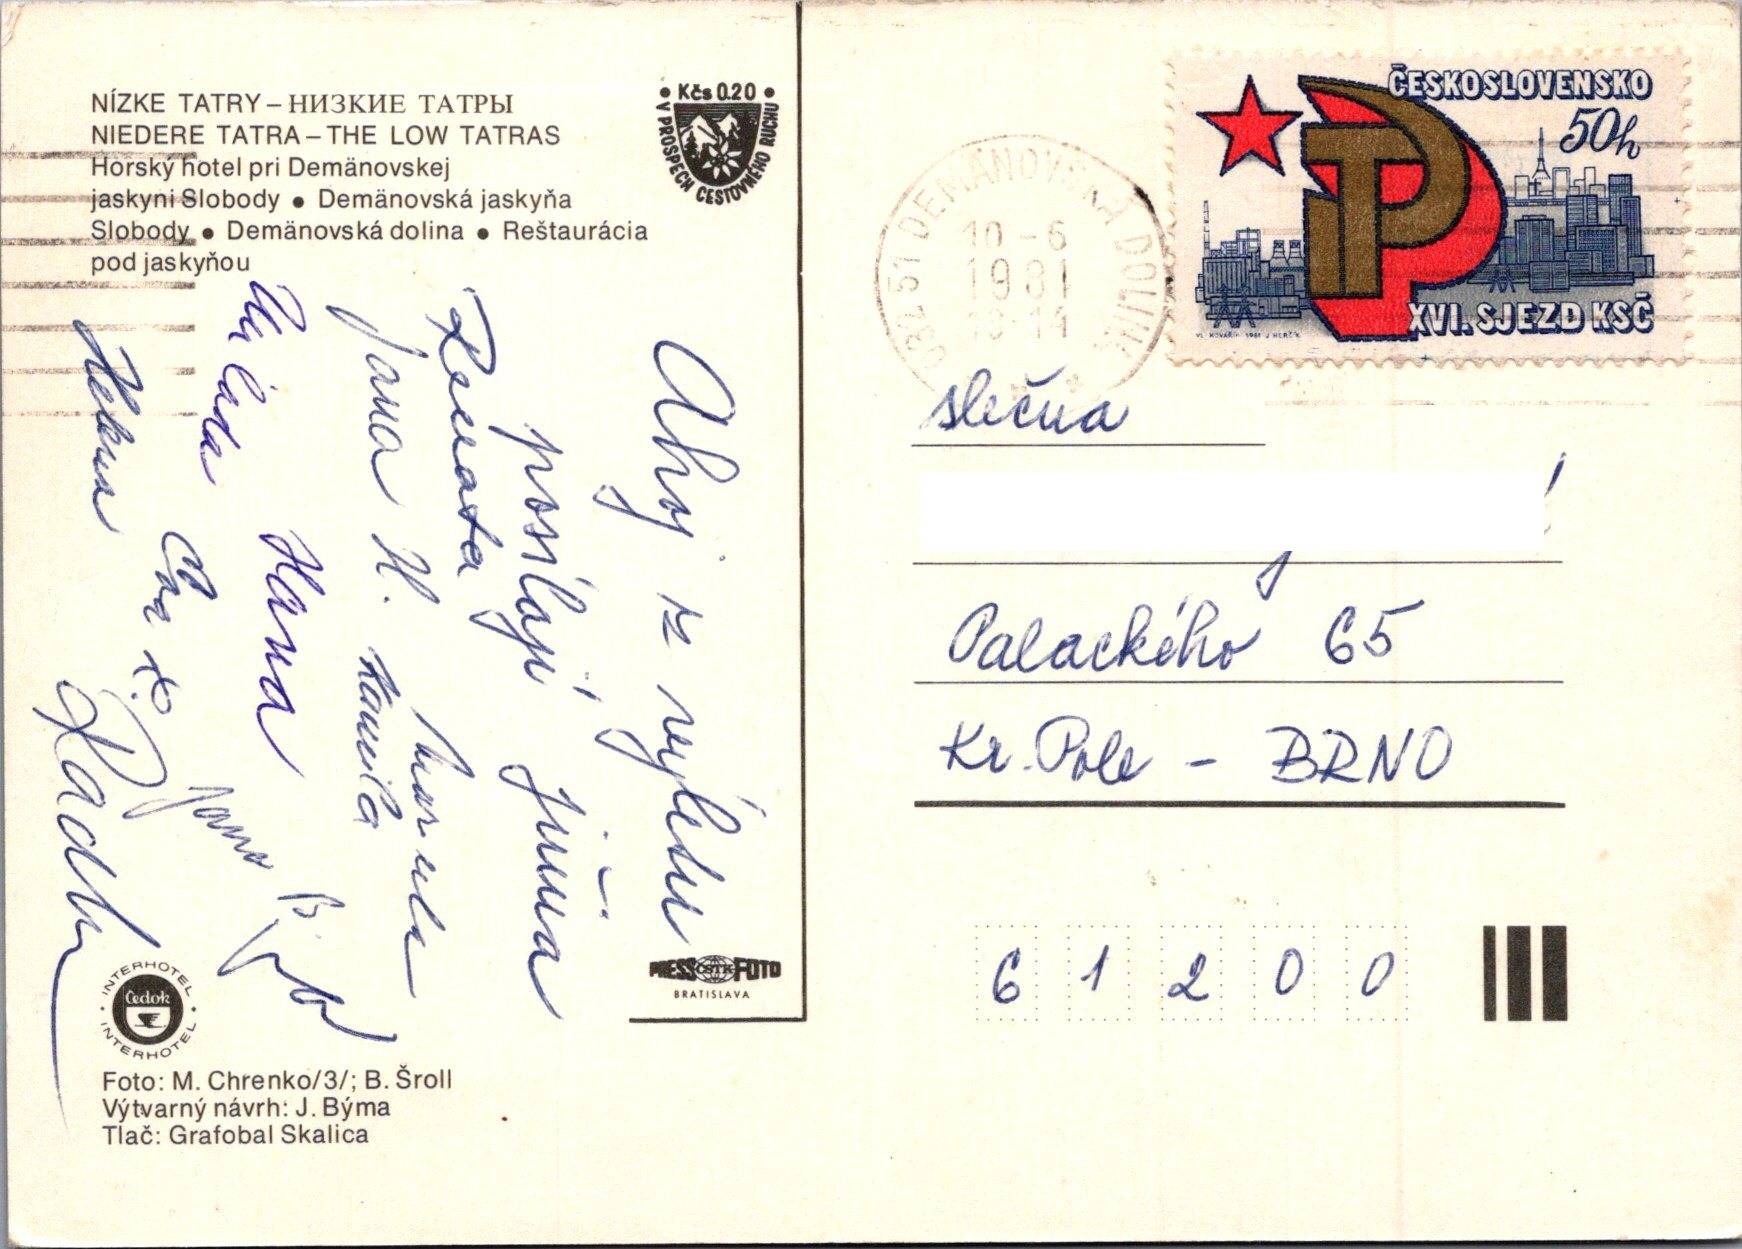 NÍZKE TATRY – НИЗКИЕ ТАТРЫ
NIEDERE TATRA – THE LOW TATRAS
Horský hotel pri Demänovskej
jaskyni Slobody • Demänovská jaskyňa
Slobody • Demänovská dolina • Reštaurácia
pod jaskyňou
• Kčs 0.20 •
V PROSPECH CESTOVNÉHO RUCHU
Ahoj z výletu
posílají
Renata
Jana H. Kamila
Milada Hana
Helena
Jana
INTERHOTEL
Čedok
INTERHOTEL
PRESS ČSTK FOTO
BRATISLAVA
Foto: M. Chrenko/3/; B. Šroll
Výtvarný návrh: J. Býma
Tlač: Grafobal Skalica
032 51 DEMÄNOVSKÁ DOLINA
10 -6
1981
ČESKOSLOVENSKO
50h
XVI. SJEZD KSČ
slečna
Palackého 65
Kr. Pole - BRNO
6 1 2 0 0